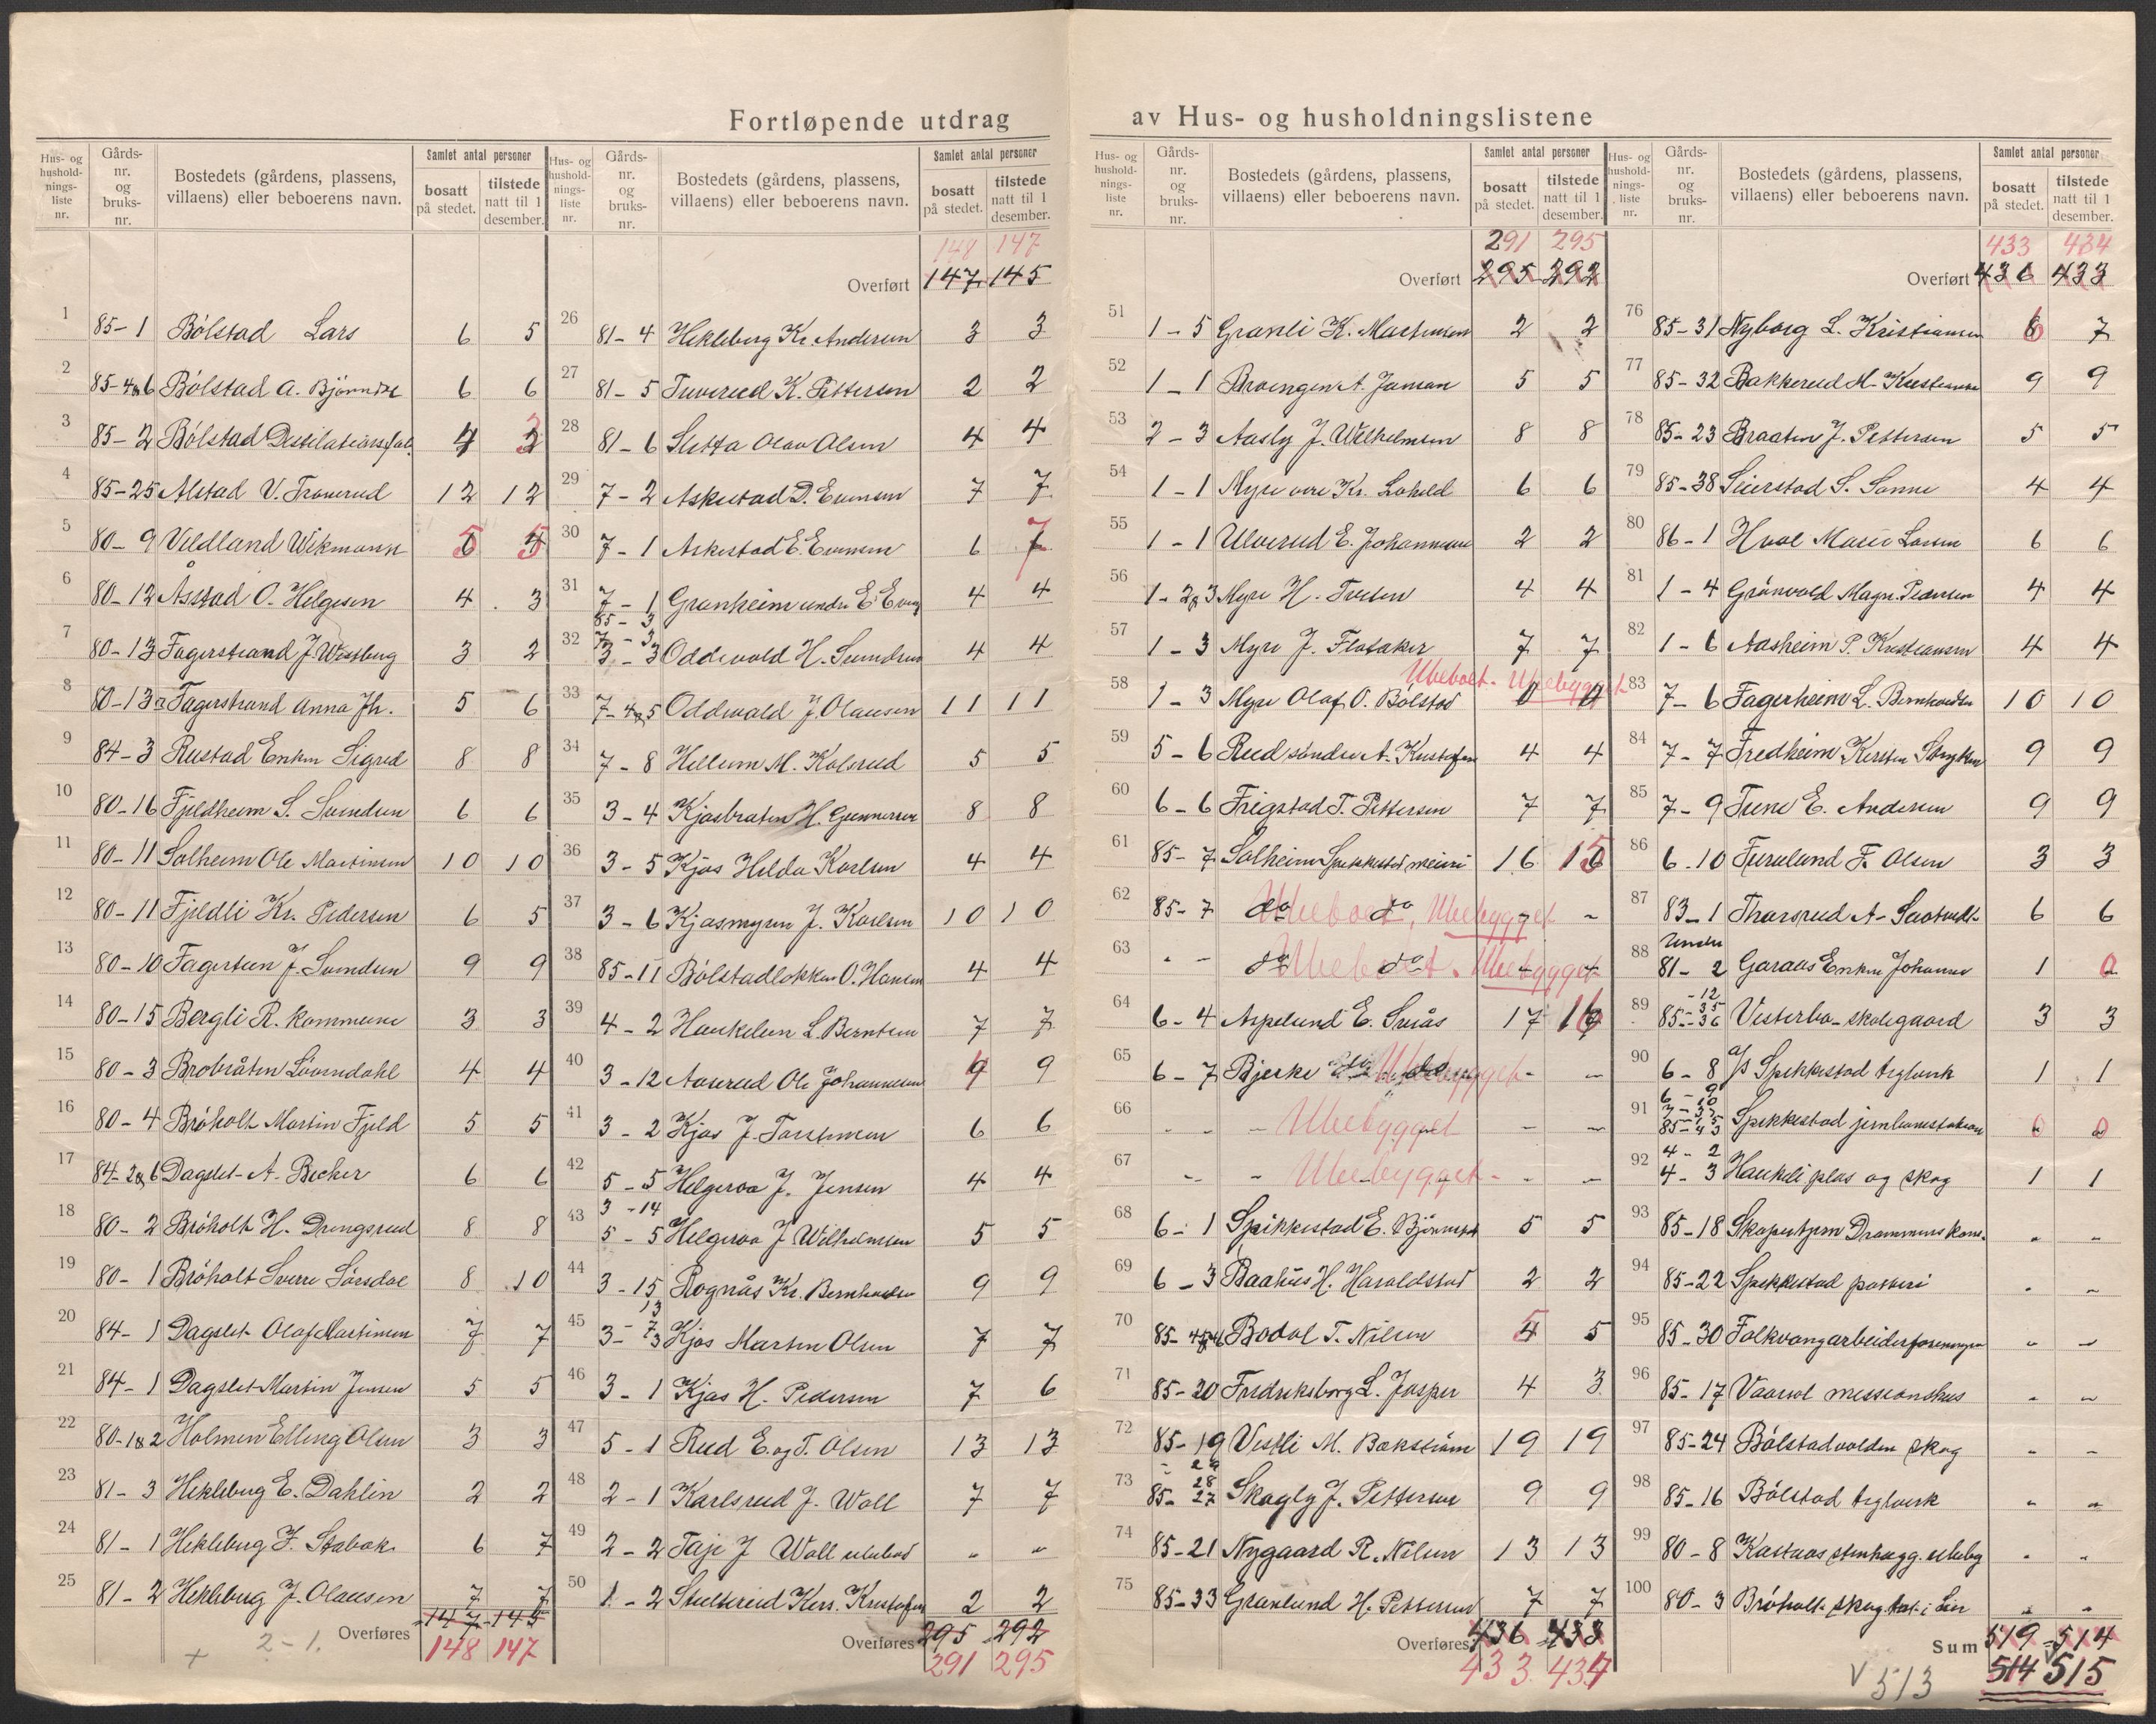 Fortløpende utdrag av Hus- og husholdningslistene
Hus- og husholdnings-liste nr. Gårds-nr. og bruks-nr. Bostedets (gårdens, plassens, villaens) eller beboerens navn. Samlet antal personer bosatt på stedet. tilstede natt til 1 desember.
1 85-1 Bølstad Lars 6 5
2 85-4&6 Bølstad A. Bjønnæs 6 6
3 85-2 Bølstad Destilationsfab. 4
4 85-25 Alstad V. Troverud 12 12
5 80-9 Vildland Wikmann 5 5
6 80-12 Åsstad O. Helgesen 4 3
7 80-13 Fagerstrand J. Westberg 3 2
8 80-13a Fagerstrand Anna Jh. 5 6
9 84-3 Rustad Enken Sigrid 8 8
10 80-16 Fjeldheim S. Svendsen 6 6
11 80-11 Solheim Ole Martinsen 10 10
12 80-11 Fjeldli Kr. Pedersen 6 5
13 80-10 Fagerteen J. Svendsen 9 9
14 80-15 Bergli R. kommune 3 3
15 80-3 Brobråten Løvendahl 4 4
16 80-4 Brøholt Martin Fjeld 5 5
17 84-2&6 Dagslet A. Becker 6 6
18 80-2 Brøholt H. Drengsrud 8 8
19 80-1 Brøholt Sverre Sørsdal 8 10
20 84-1 Dagslet Olaf Martinsen 7 7
21 84-1 Dagslet Martin Jensen 5 5
22 80-1&2 Holmen Elling Olsen 3 3
23 81-3 Hekleberg E. Dahlin 2 2
24 81-1 Hekleberg F. Stabæk 6 7
25 81-2 Hekleberg J. Olausen 7 7
147-145
+ 2-1. Overføres 148 147
Hus- og husholdnings-liste nr. Gårds-nr. og bruks-nr. Bostedets (gårdens, plassens, villaens) eller beboerens navn. Samlet antal personer bosatt på stedet. tilstede natt til 1 desember.
148 147
Overført 147 145
26 81-4 Hekleberg Kr. Andersen 3 3
27 81-5 Tuverud K. Pettersen 2 2
28 81-6 Sletta Olav Olsen 4 4
29 7-2 Askestad D. Evensen 7 7
30 7-1 Askestad E. Evensen 6 7
31 7-1 Granheim under E. Evens 4 4
85-3
7-3
32 3-3 Oddevold H. Svendsen 4 4
33 7-4&5 Oddevald J. Olausen 11 11
34 7-8 Hellum M. Kolsrud 5 5
35 3-4 Kjosbraten H. Gunnersen 8 8
36 3-5 Kjos Hilda Karlsen 4 4
37 3-6 Kjosmyren J. Karlsen 10 10
38 85-11 Bølstadløkken O. Hansen 4 4
39 4-2 Haukelien L. Berntsen 7 7
40 3-12 Aaserud Ole Johannesen 9
41 3-2 Kjos J. Torstensen 6 6
42 5-5 Helgeroa J. Jensen 4 4
3-14
43 5-5 Helgeroa J. Wilhelmsen 5 5
44 3-15 Rognås Kr. Bernhardsen 9 9
13
7
45 3-3 Kjos Marten Olsen 7 7
46 3-1 Kjos H. Pedersen 7 6
47 5-1 Rud E. og T. Olsen 13 13
48 2-1 Karlsrud J. Woll 7 7
49 2-2 Taje J. Woll ubebod " "
50 1-2 Stulsrud Kers. Kristofsen 2 2
Overføres 295 292
291 295
Hus- og husholdnings-liste nr. Gårds-nr. og bruks-nr. Bostedets (gårdens, plassens, villaens) eller beboerens navn. Samlet antal personer bosatt på stedet. tilstede natt til 1 desember.
291 295
Overført 295 292
51 1-5 Granli K. Martinsen 2 2
52 1-1 Broengen A. Jonsson 5 5
53 2-3 Aasly J. Wilhelmsen 8 8
54 1-1 Myre øvre Kr. Lohild 6 6
55 1-1 Ulverud E. Johannesen 2 2
56 1-2&3 Myre H. Tveten 4 4
57 1-3 Myre J. Flotaker 7 7
Ubeboet. Ubebygget
58 1-3 Myre Olaf O. Bølstad 0 0
59 5-6 Rud søndre A. Kristofsen 4 4
60 6-6 Frigstad T. Pettersen 7 7
61 85-7 Solheim Spikkestad meieri 16
62 85-7 do do Ubeboet, Ubebygget - -
63 - - do do Ubeboet. Ubebygget
64 6-4 Aspelund E. Sveås 17
65 6-7 Bjerke Ubebygget - -
66 - - - Ubebygget - -
67 - - - Ubebygget - - -
68 6-1 Spikkestad E. Bjørnstad 5 5
69 6-3 Baahus H. Haraldstad 2 2
70 85- Bødal T. Nilsen 5
71 85-20 Fredriksborg L. Jasper 4 3
72 85-19 Vestli M. Bækstrøm 19 19
- 29
28
73 85-27 Skogly J. Pettersen 9 9
74 85-21 Nygaard R. Nilsen 13 13
75 85-33 Granlund H. Pettersen 7 7
Overføres 436 433
433 434
Hus- og husholdnings-liste nr. Gårds-nr. og bruks-nr. Bostedets (gårdens, plassens, villaens) eller beboerens navn. Samlet antal personer bosatt på stedet. tilstede natt til 1 desember.
433 434
Overført 436 433
76 85-31 Nyborg L. Kristiansen 6 7
77 85-32 Bakkerud M. Kristiansen 9 9
78 85-23 Braaten J. Pettersen 5 5
79 85-38 Seierstad S. Sanne 4 4
80 86-1 Hval Marie Larsen 6 6
81 1-4 Grønvold Magn. Pedersen 4 4
82 1-6 Aasheim P. Kristiansen 4 4
83 7-6 Fagerheim L. Bernhardsen 10 10
84 7-7 Fredheim Kersten Stryken 9 9
85 7-9 Tune E. Andersen 9 9
86 6-10 Furulund F. Olsen 3 3
87 83-1 Thorsrud A. Saatvedt 6 6
Under
88 81-2 Garaas Enken Johanne 1 0
-12
-35
89 85-36 Vesterbo skolegaard 3 3
90 6-8 A/S Spikkestad teglverk 1 1
91 Spikkestad jernbanestation 0 0
4-2
92 4-3 Haukeli plas og skog 1 1
93 85-18 Skapertjern Drammens kom. " "
94 85-22 Spikkestad posteri " "
95 85-30 Folkvang arbeiderforeningen " "
96 85-17 Vaarsol missionshus " "
97 85-24 Bølstadvolden skog " "
98 85-16 Bølstad teglverk " "
99 80-8 Kastaas stenhugg. ubebyg " "
100 80-3 Brøholt skog tat i Lier " "
Sum 519-514
V 513 514 515